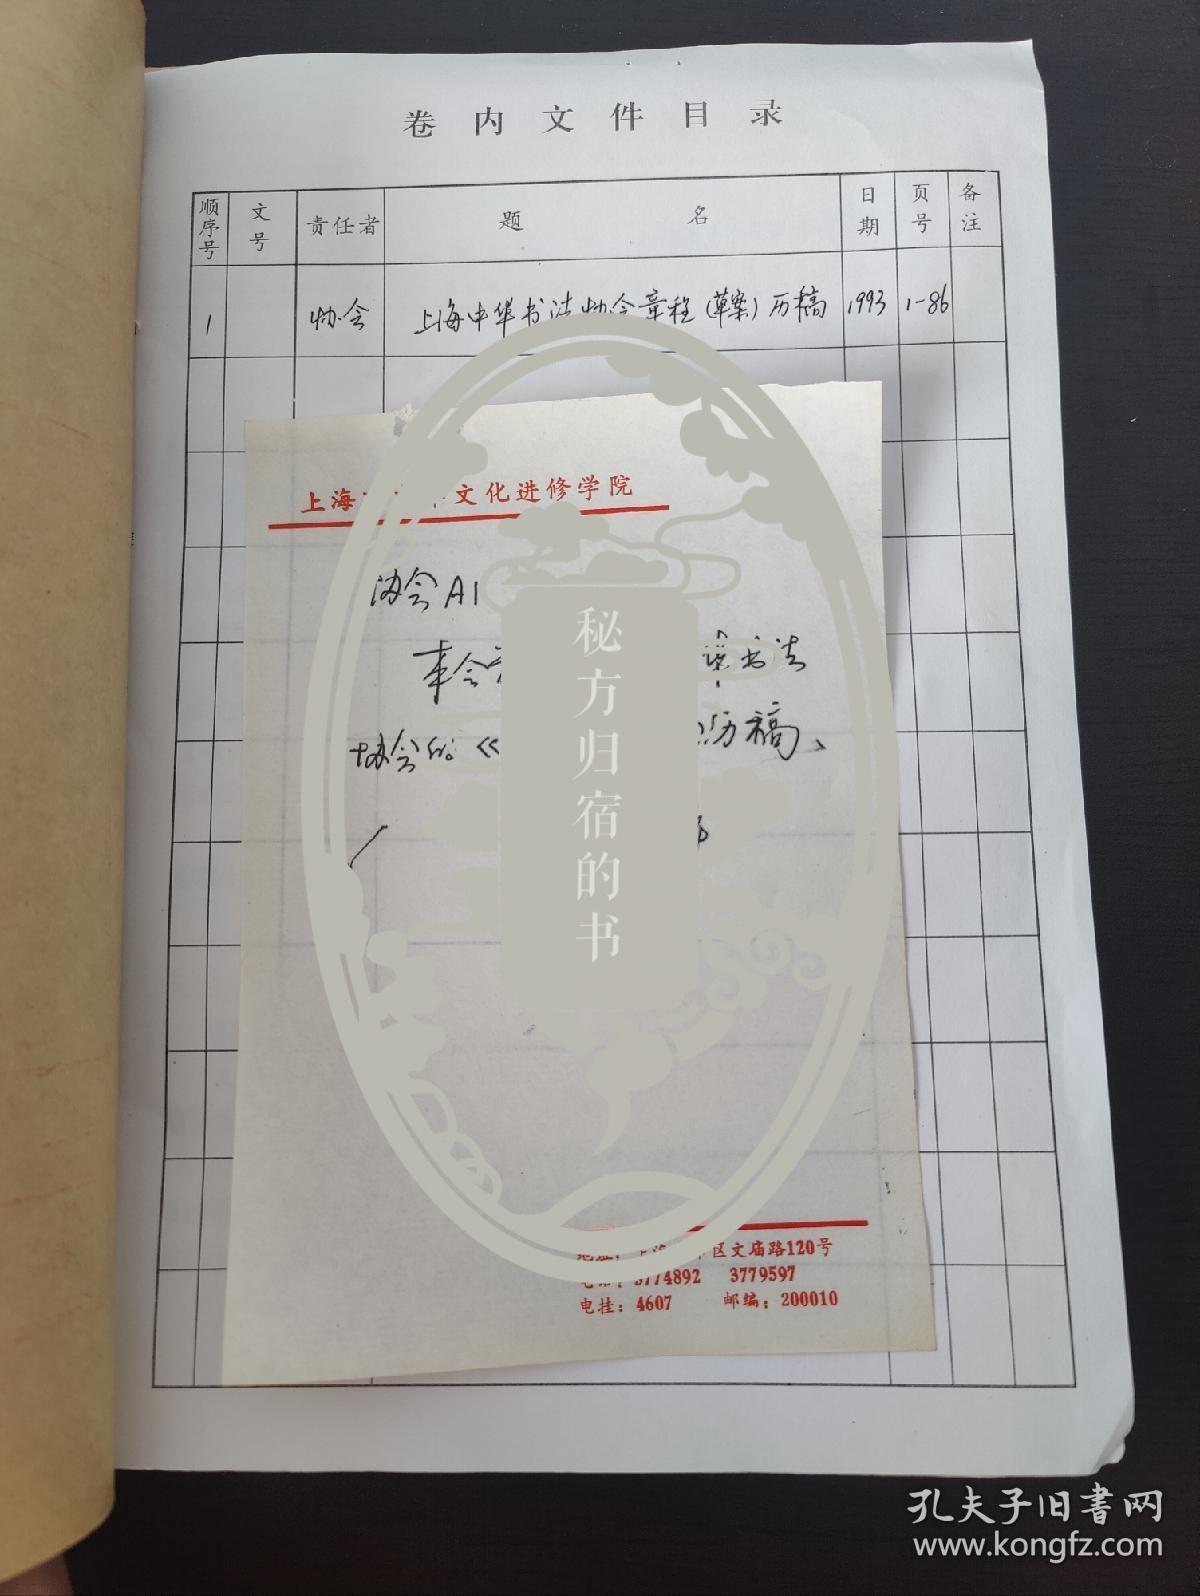 卷内文件目录
顺序号 文号 责任者 题名 日期 页号 备注
1 协会 上海中华书法协会章程(草案)历稿 1993 1-86
上海 文化进修学院
协会A1
本会 书法
协会的《 历稿、
秘方归宿的书
区文庙路120号
3774892 3779597
电挂：4607 邮编：200010
孔夫子旧书网
www.kongfz.com